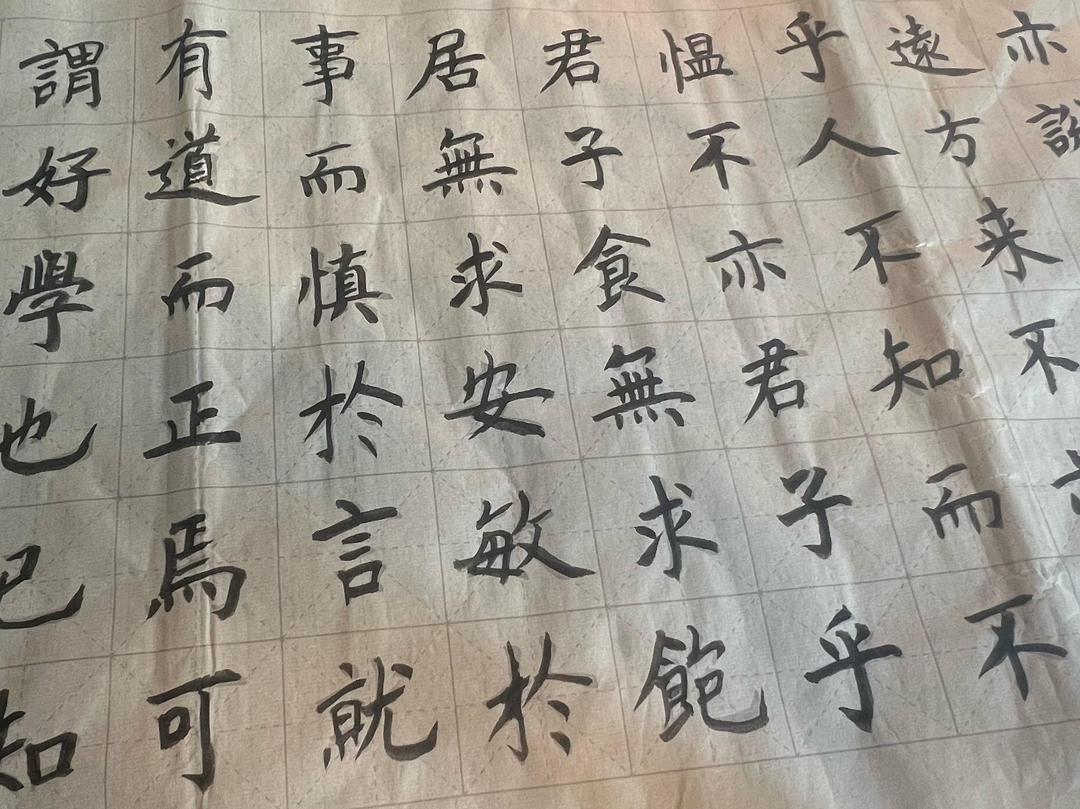 亦説
遠方来不
乎人不知而不
愠不亦君子乎
君子食無求飽
居無求安敏於
事而慎於言就
有道而正焉可
謂好學也已知